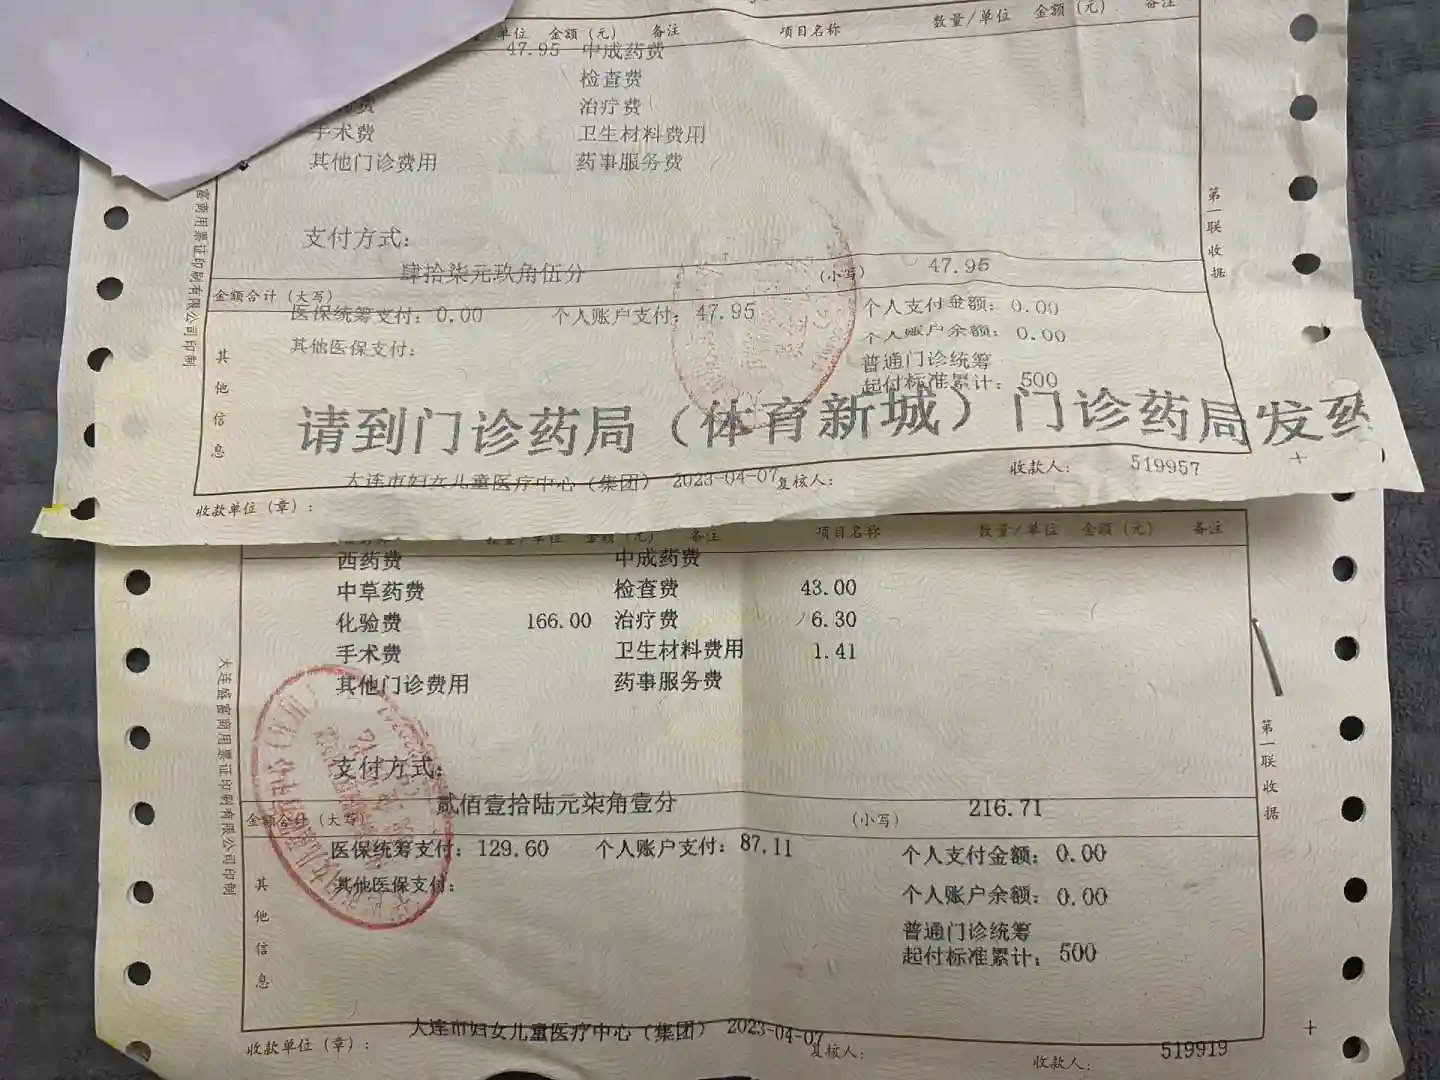 单位 金额(元) 备注 项目名称 数量/单位 金额(元) 备注
47.95 中成药费
检查费
费 治疗费
手术费 卫生材料费用
其他门诊费用 药事服务费
富商用票证印制有限公司印制
第一联 收据
支付方式:
金额合计(大写) 肆拾柒元玖角伍分 (小写) 47.95
医保统筹支付: 0.00 个人账户支付: 47.95 个人支付金额: 0.00
个人账户余额: 0.00
其他医保支付:
普通门诊统筹
起付标准累计: 500
其他信息
请到门诊药局(体育新城)门诊药局发药
收款单位(章): 大连市妇女儿童医疗中心(集团) 2023-04-07 复核人: 收款人: 519957
数量/单位 金额(元) 备注 项目名称 数量/单位 金额(元) 备注
西药费 中成药费
中草药费 检查费 43.00
化验费 166.00 治疗费 6.30
手术费 卫生材料费用 1.41
其他门诊费用 药事服务费
大连盛富商用票证印制有限公司印制
第一联 收据
支付方式:
金额合计(大写) 贰佰壹拾陆元柒角壹分 (小写) 216.71
医保统筹支付: 129.60 个人账户支付: 87.11 个人支付金额: 0.00
其他医保支付: 个人账户余额: 0.00
普通门诊统筹
起付标准累计: 500
其他信息
收款单位(章): 大连市妇女儿童医疗中心(集团) 2023-04-07 复核人: 收款人: 519919